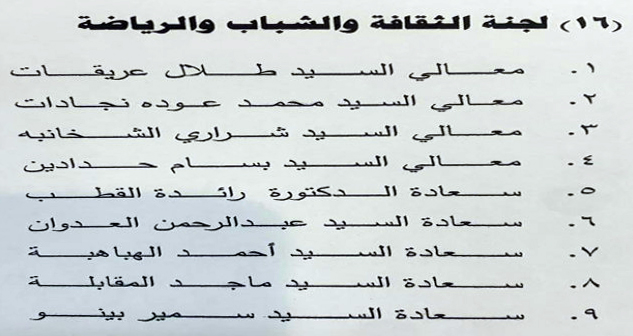 (١٦) لجنة الثقافة والشباب والرياضة
١. معالي السيد طلال عريقات
٢. معالي السيد محمد عوده نجادات
٣. معالي السيد شراري الشخانبه
٤. معالي السيد بسام حدادين
٥. سعادة الدكتورة رائدة القطب
٦. سعادة السيد عبدالرحمن العدوان
٧. سعادة السيد أحمد الهباهبة
٨. سعادة السيد ماجد المقابلة
٩. سعادة السيد سمير بينو